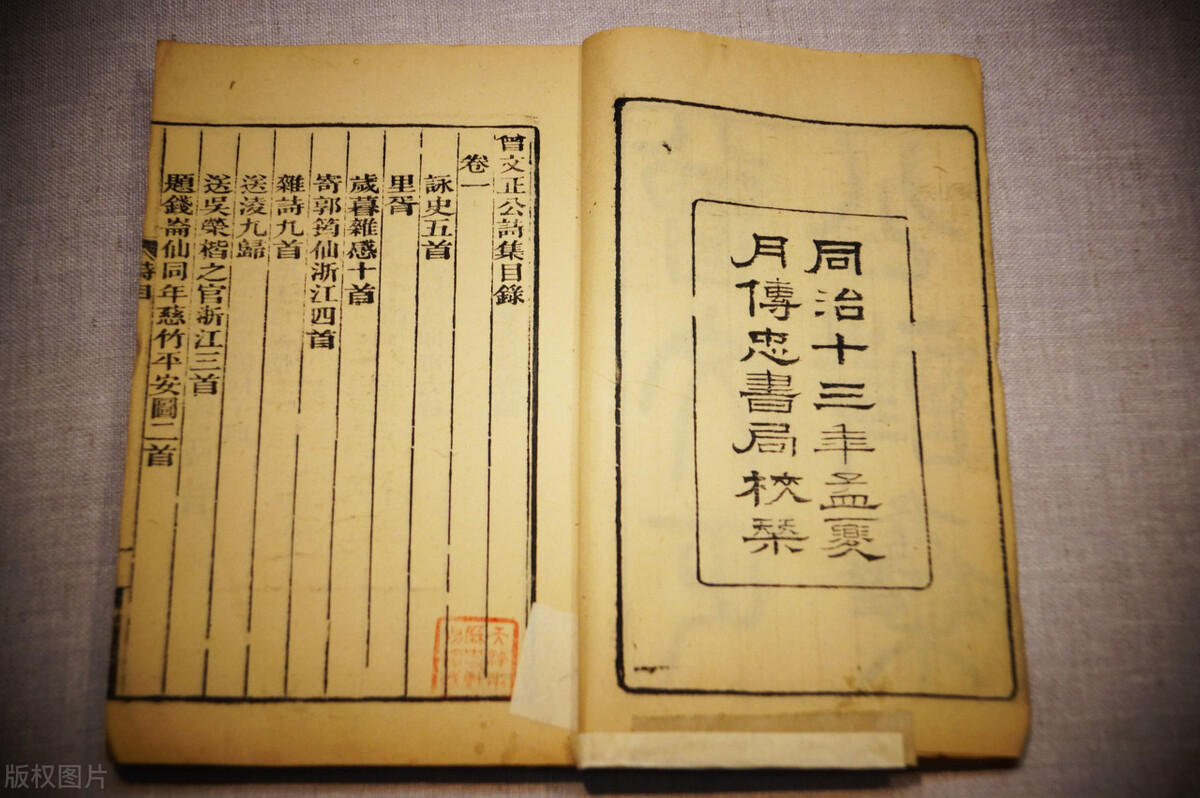 同治十三年孟夏
月傳忠書局校栞
曾文正公詩集目錄
卷一
詠史五首
里胥
歲暮雜感十首
寄郭筠仙浙江四首
雜詩九首
送淩九歸
送吳榮楷之官浙江三首
題錢崙仙同年慈竹平安圖二首
詩目
版权图片